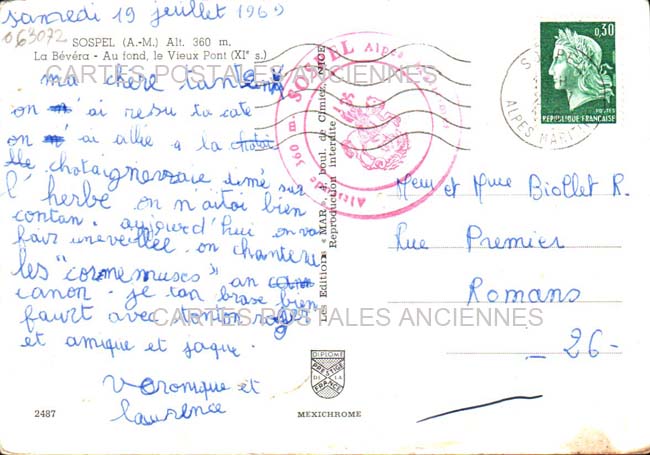 samedi 19 juillet 1969
063072
SOSPEL (A.-M.) Alt. 360 m.
La Bévéra - Au fond, le Vieux Pont (XIe s.)
CARTES POSTALES ANCIENNES
ma chère tantine
on n'ai resu ta cate
on n'ai allié a la
chataigneraie sur
l'herbe on n'aitai bien
contan. aujourd'hui on va
fair une veillée on chantera
les "cornemuses" an
canon. je tan brase bien
faurt avec tonton roger
et amique et jaque.
veronique et
laurence
2487
Les Editions « MAR », boul. de Cimiez, NICE
Reproduction interdite
SOSPEL Alpes
Altitude 360 m
DIPLOME
PRESTIGE
DE LA
FRANCE
MEXICHROME
0,30
POSTES
REPUBLIQUE FRANCAISE
ALPES MARITIMES
Meur et Mme Biollet R.
Rue Premier
Romans
- 26 -
CARTES POSTALES ANCIENNES